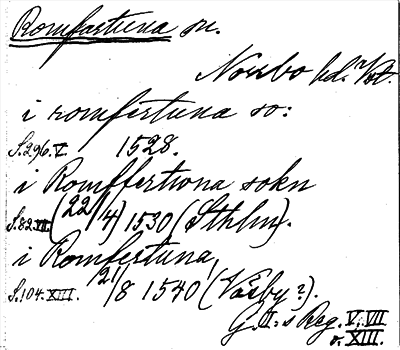 Romfartuna sn.
Norrbo hd. Vstm.
i romfertuna so:
S. 296. V. 1528.
i Romffertwona sokn
S. 82. VII. (22/4) 1530 (Sthlm).
i Romfertuna,
S. 104. XIII. 21/8 1540 (Väsby?).
G. II: s Reg. V, VII
o. XIII.